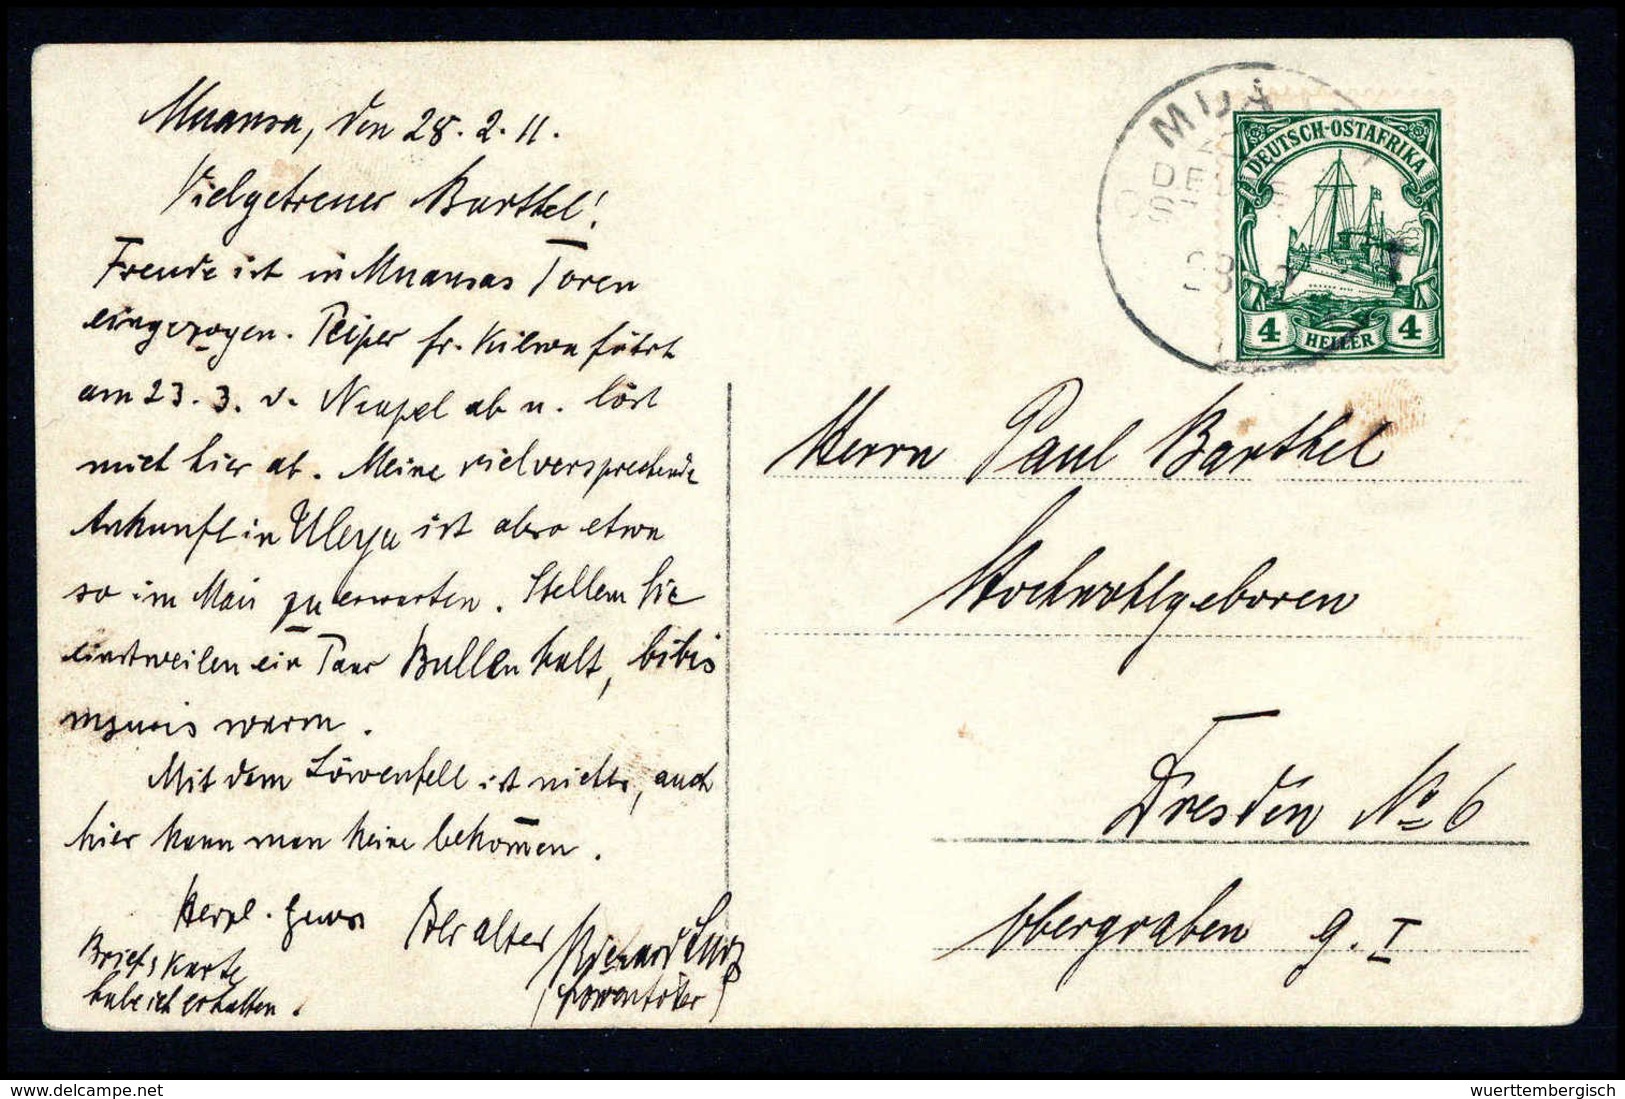 Muansa, den 28.2.11.
Vielgetreuer Barthel!
Freude ist in Muansas Toren
eingezogen. Peiper fr. Kilwa fährt
am 23.3. v. Neapel ab u. löst
mich hier ab. Meine vielversprechende
Ankunft in Uleya ist also etwa
so im Mai zu erwarten. Stellen Sie
einstweilen ein Paar Bullen kalt, bibis
warm.
Mit dem Löwenfell ist nichts, auch
hier kann man keine bekom̄en.
Herzl. Gruss Ihr alter
Richard
Briefs Karte
habe ich erhalten.
MUA
DEUTSCH-OSTAFRIKA
4 HELLER 4
Herrn Paul Barthel
Hochwohlgeboren
Dresden No 6
Obergraben 9. I
© Delcampe.net
wuerttembergisch